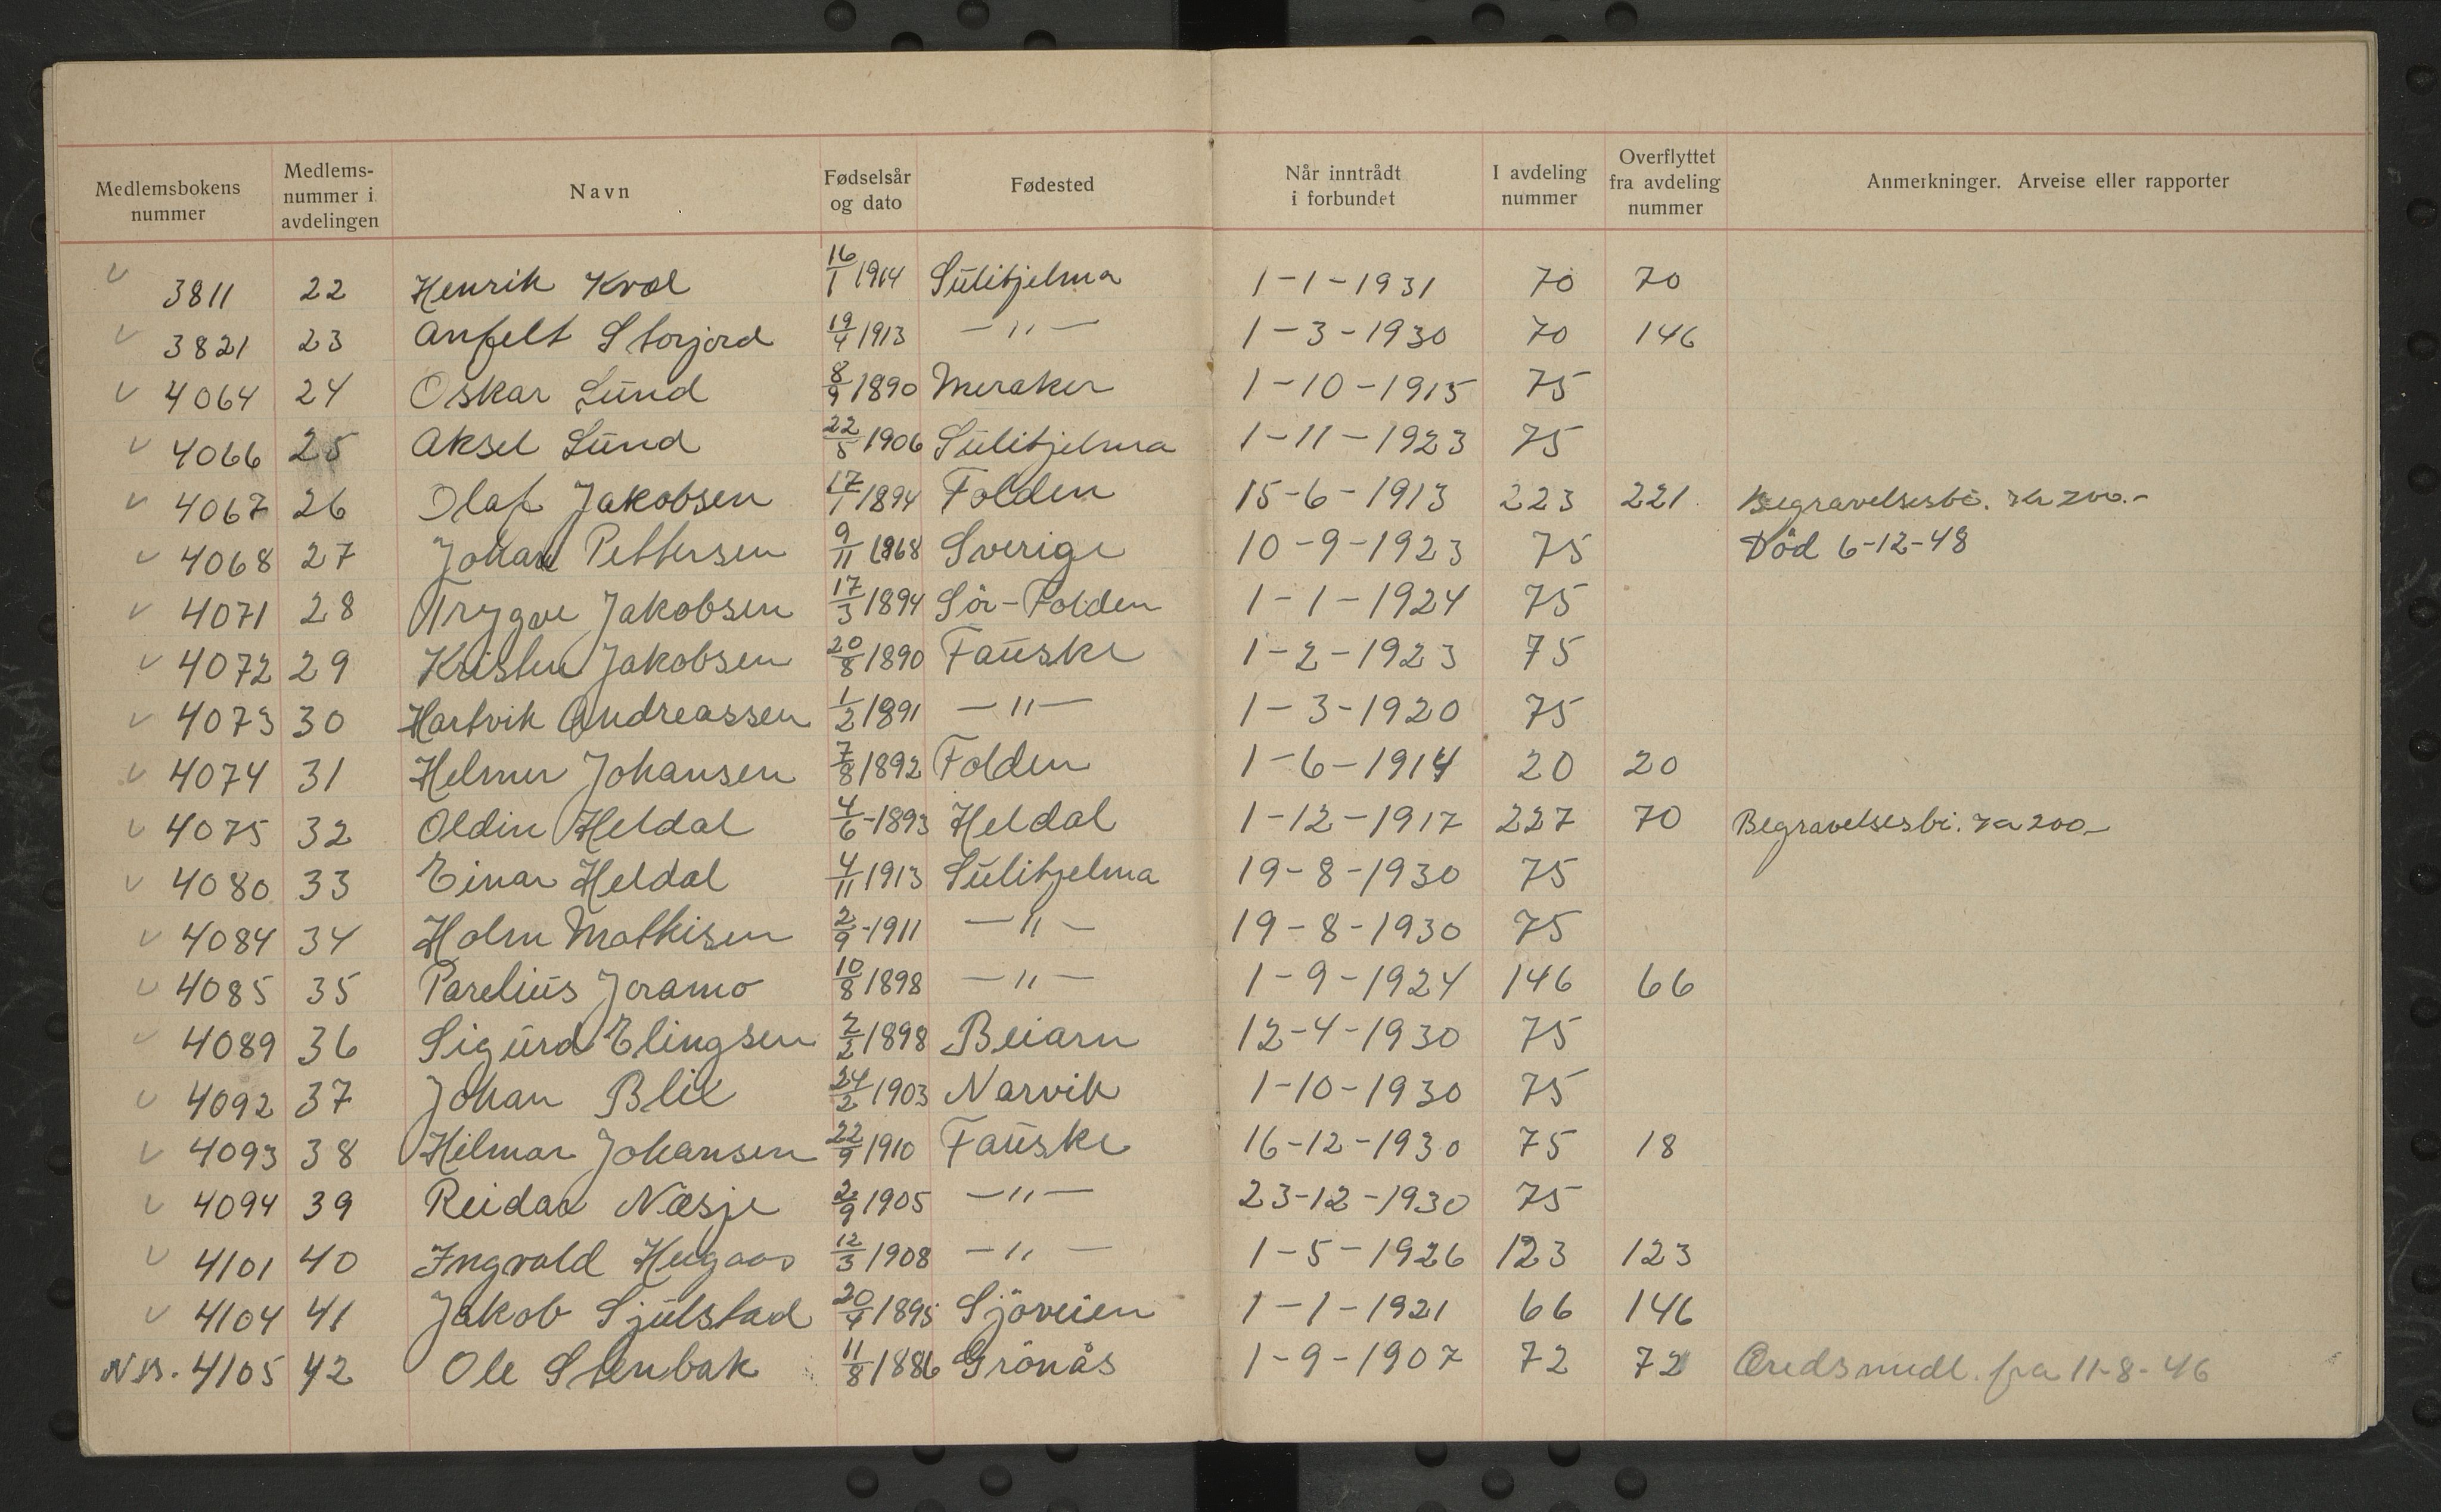 Medlemsbokens nummer | Medlems-nummer i avdelingen | Navn | Fødselsår og dato | Fødested | Når inntrådt i forbundet | I avdeling nummer | Overflyttet fra avdeling nummer | Anmerkninger. Arveise eller rapporter
v 3811 22 Henrik Kvæl 16/1 1914 Sulitjelma 1-1-1931 70 70
v 3821 23 Anfelt Storjord 19/4 1913 —"— 1-3-1930 70 146
v 4064 24 Oskar Lund 8/9 1890 Meraker 1-10-1915 75
v 4066 25 Aksel Lund 22/5 1906 Sulitjelma 1-11-1923 75
v 4067 26 Olaf Jakobsen 17/1 1894 Folden 15-6-1913 223 221 Begravelsesbi. kr 200.-
v 4068 27 Johan Pettersen 9/11 1868 Sverige 10-9-1923 75 Död 6-12-48
v 4071 28 Trygve Jakobsen 17/3 1894 Sör-Folden 1-1-1924 75
v 4072 29 Kristen Jakobsen 20/8 1890 Fauske 1-2-1923 75
v 4073 30 Hartvik Andreassen 1/2 1891 —"— 1-3-1920 75
v 4074 31 Helmer Johansen 7/8 1892 Folden 1-6-1914 20 20
v 4075 32 Oldin Heldal 4/6-1893 Heldal 1-12-1917 227 70 Begravelsesbi. kr 200-
v 4080 33 Einar Heldal 4/11 1913 Sulitjelma 19-8-1930 75
v 4084 34 Holm Mathisen 2/9-1911 —"— 19-8-1930 75
v 4085 35 Parelius Joramo 10/8 1898 —"— 1-9-1924 146 66
v 4089 36 Sigurd Elingsen 2/2 1898 Beiarn 12-4-1930 75
v 4092 37 Johan Blix 24/2 1903 Narvik 1-10-1930 75
v 4093 38 Hilmar Johansen 22/9 1910 Fauske 16-12-1930 75 18
v 4094 39 Reidar Næsje 2/9 1905 —"— 23-12-1930 75
v 4101 40 Ingvald Hugaas 12/3 1908 —"— 1-5-1926 123 123
v 4104 41 Jakob Sjulstad 20/4 1895 Sjöveien 1-1-1921 66 146
NB. 4105 42 Ole Stenbak 11/8 1886 Grönås 1-9-1907 72 72 Æredsmedl. fra 11-8-46